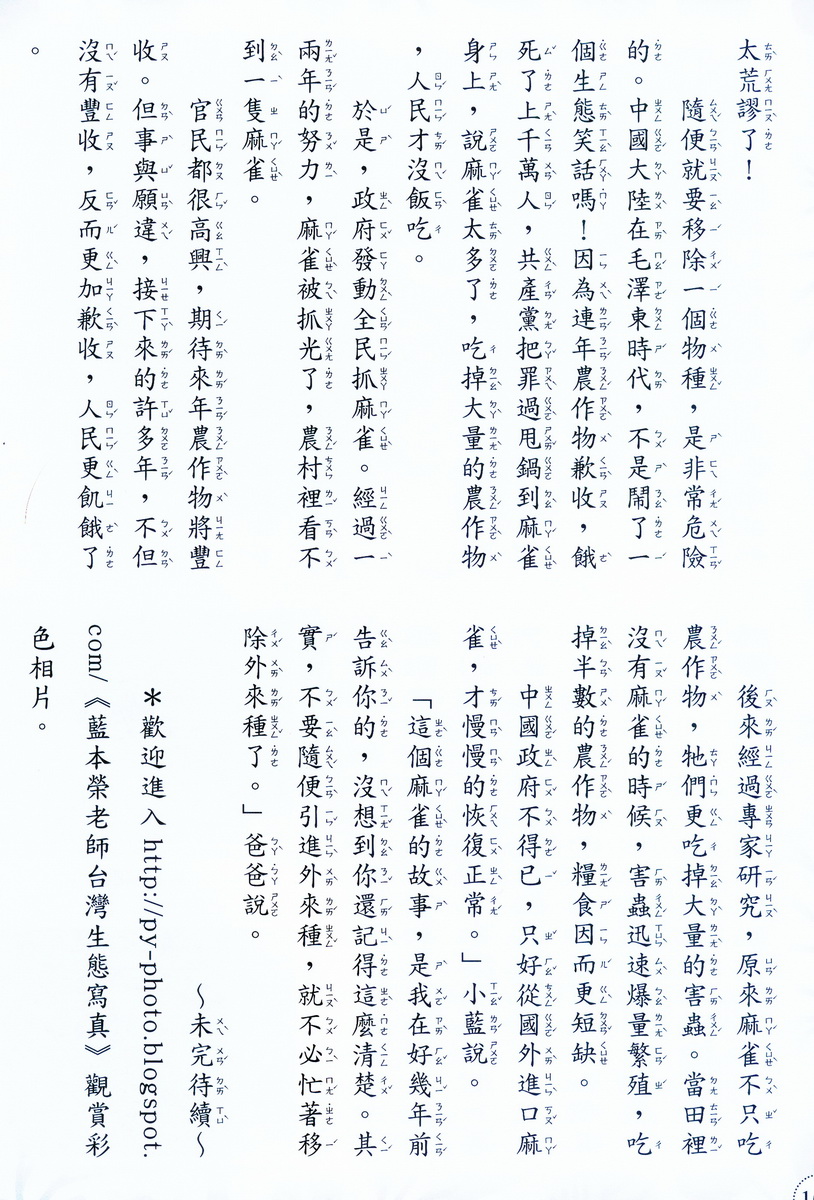 太荒謬了！
隨便就要移除一個物種，是非常危險
的。中國大陸在毛澤東時代，不是鬧了一
個生態笑話嗎！因為連年農作物歉收，餓
死了上千萬人，共產黨把罪過甩鍋到麻雀
身上，說麻雀太多了，吃掉大量的農作物
，人民才沒飯吃。
於是，政府發動全民抓麻雀。經過一
兩年的努力，麻雀被抓光了，農村裡看不
到一隻麻雀。
官民都很高興，期待來年農作物將豐
收。但事與願違，接下來的許多年，不但
沒有豐收，反而更加歉收，人民更飢餓了
。
後來經過專家研究，原來麻雀不只吃
農作物，牠們更吃掉大量的害蟲。當田裡
沒有麻雀的時候，害蟲迅速爆量繁殖，吃
掉半數的農作物，糧食因而更短缺。
中國政府不得已，只好從國外進口麻
雀，才慢慢的恢復正常。」小藍說。
「這個麻雀的故事，是我在好幾年前
告訴你的，沒想到你還記得這麼清楚。其
實，不要隨便引進外來種，就不必忙著移
除外來種了。」爸爸說。
～未完待續～
＊歡迎進入 http://py-photo.blogspot.
com/《藍本榮老師台灣生態寫真》觀賞彩
色相片。